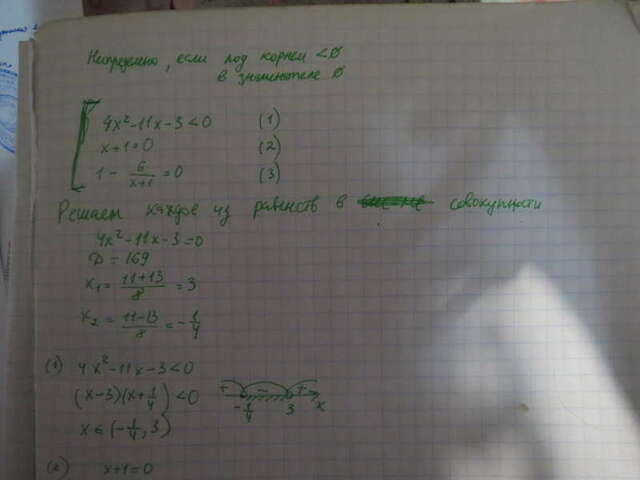 Неопределено, если под корнем < 0
в знаменателе 0
4x² - 11x - 3 < 0 (1)
x + 1 = 0 (2)
1 - 6/(x+1) = 0 (3)
Решаем каждое из равенств в совокупности
4x² - 11x - 3 = 0
D = 169
x₁ = (11+13)/8 = 3
x₂ = (11-13)/8 = -1/4
(1) 4x² - 11x - 3 < 0
(x-3)(x+1/4) < 0
+ - +
-1/4 3 x
x ∈ (-1/4, 3)
(2) x + 1 = 0